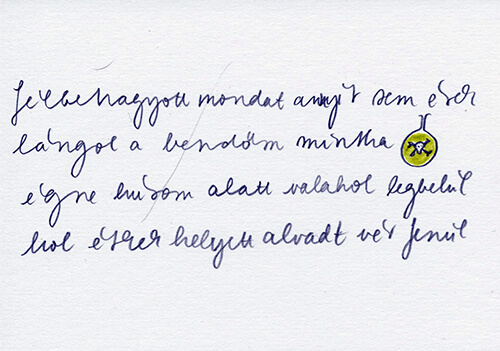 félbehagyott mondat annyit sem érek
lángol a bendőm mintha
égne húsom alatt valahol legbelül
hol étkek helyett alvadt vér feszül